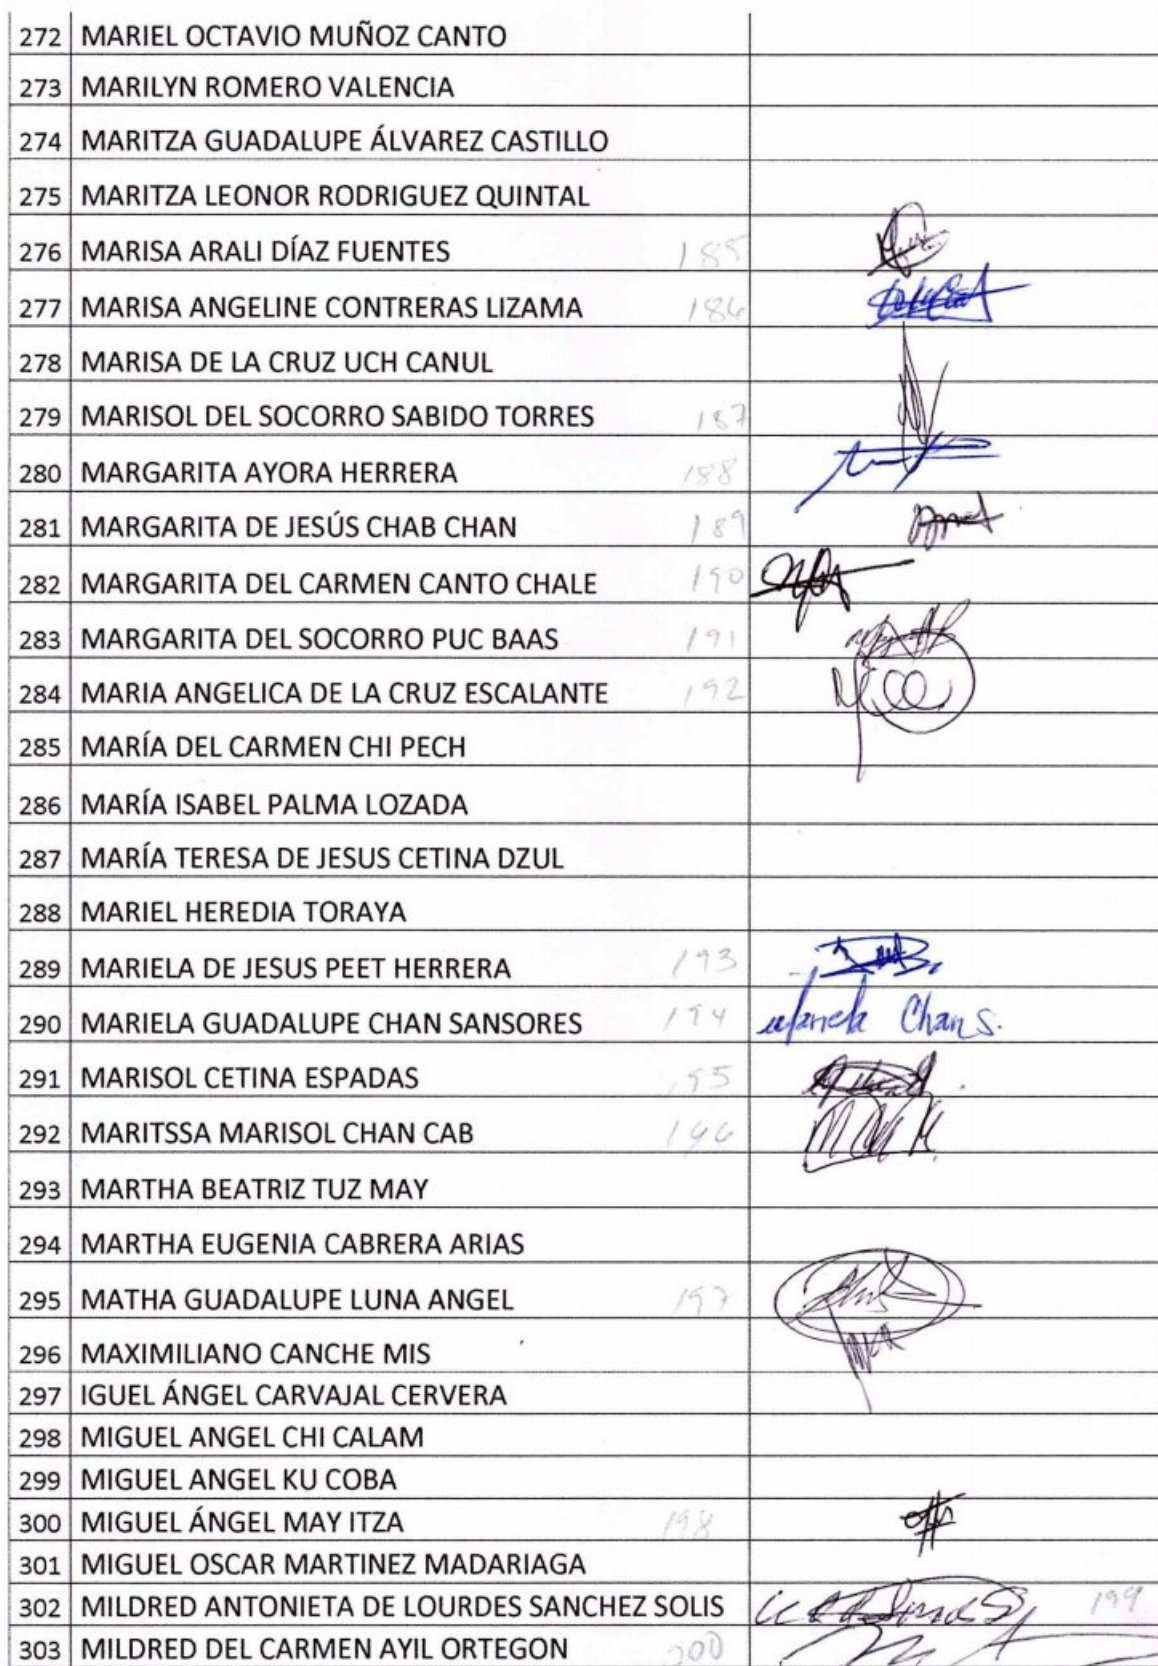 272 MARIEL OCTAVIO MUÑOZ CANTO
273 MARILYN ROMERO VALENCIA
274 MARITZA GUADALUPE ÁLVAREZ CASTILLO
275 MARITZA LEONOR RODRIGUEZ QUINTAL
276 MARISA ARALI DÍAZ FUENTES 185
277 MARISA ANGELINE CONTRERAS LIZAMA 186
278 MARISA DE LA CRUZ UCH CANUL
279 MARISOL DEL SOCORRO SABIDO TORRES 187
280 MARGARITA AYORA HERRERA 188
281 MARGARITA DE JESÚS CHAB CHAN 189
282 MARGARITA DEL CARMEN CANTO CHALE 190
283 MARGARITA DEL SOCORRO PUC BAAS 191
284 MARIA ANGELICA DE LA CRUZ ESCALANTE 192
285 MARÍA DEL CARMEN CHI PECH
286 MARÍA ISABEL PALMA LOZADA
287 MARÍA TERESA DE JESUS CETINA DZUL
288 MARIEL HEREDIA TORAYA
289 MARIELA DE JESUS PEET HERRERA 193
290 MARIELA GUADALUPE CHAN SANSORES 194 Mariela Chan S.
291 MARISOL CETINA ESPADAS 195
292 MARITSSA MARISOL CHAN CAB 196
293 MARTHA BEATRIZ TUZ MAY
294 MARTHA EUGENIA CABRERA ARIAS
295 MATHA GUADALUPE LUNA ANGEL 197
296 MAXIMILIANO CANCHE MIS
297 IGUEL ÁNGEL CARVAJAL CERVERA
298 MIGUEL ANGEL CHI CALAM
299 MIGUEL ANGEL KU COBA
300 MIGUEL ÁNGEL MAY ITZA 198
301 MIGUEL OSCAR MARTINEZ MADARIAGA
302 MILDRED ANTONIETA DE LOURDES SANCHEZ SOLIS 199
303 MILDRED DEL CARMEN AYIL ORTEGON 200